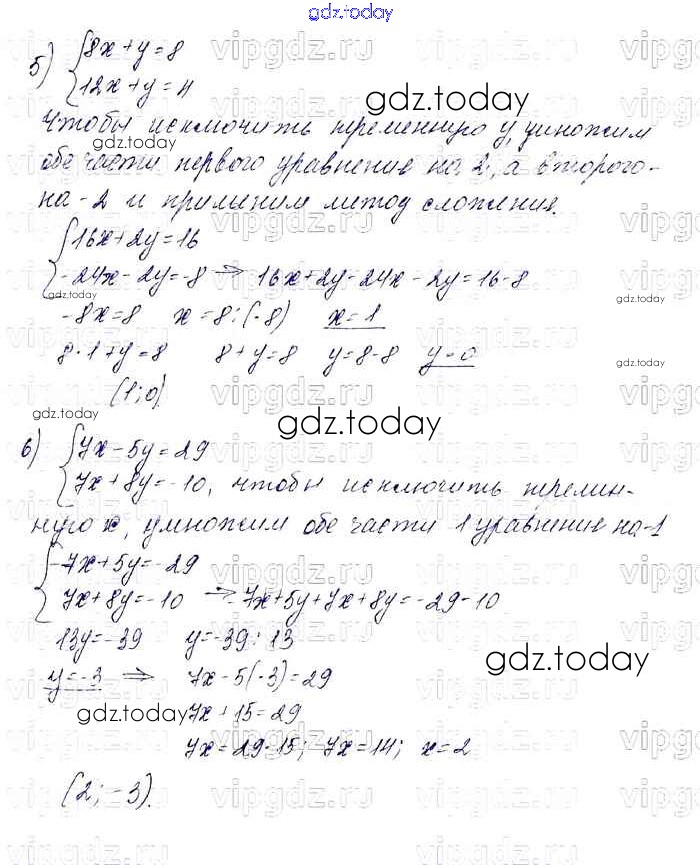 gdz.today
5) { 8x + y = 8
12x + y = 4
gdz.today
Чтобы исключить переменную y, умножим
обе части первого уравнение на 2, а второго -
на -2 и применим метод сложения.
{ 16x + 2y = 16
-24x - 2y = -8 ⇒ 16x + 2y - 24x - 2y = 16 - 8
gdz.today
gdz.today
-8x = 8 x = 8 : (-8) x = 1
8 · 1 + y = 8 8 + y = 8 y = 8 - 8 y = 0
gdz.today
(1; 0)
gdz.today
gdz.today
6) { 7x - 5y = 29
7x + 8y = -10, чтобы исключить перемен-
ную x, умножим обе части 1 уравнение на -1
{ -7x + 5y = -29
7x + 8y = -10 ⇒ -7x + 5y + 7x + 8y = -29 - 10
13y = -39 y = -39 : 13
gdz.today
y = -3 ⇒ 7x - 5(-3) = 29
gdz.today
7x + 15 = 29
7x = 29 - 15; 7x = 14; x = 2
(2; -3).
vipgdz.ru